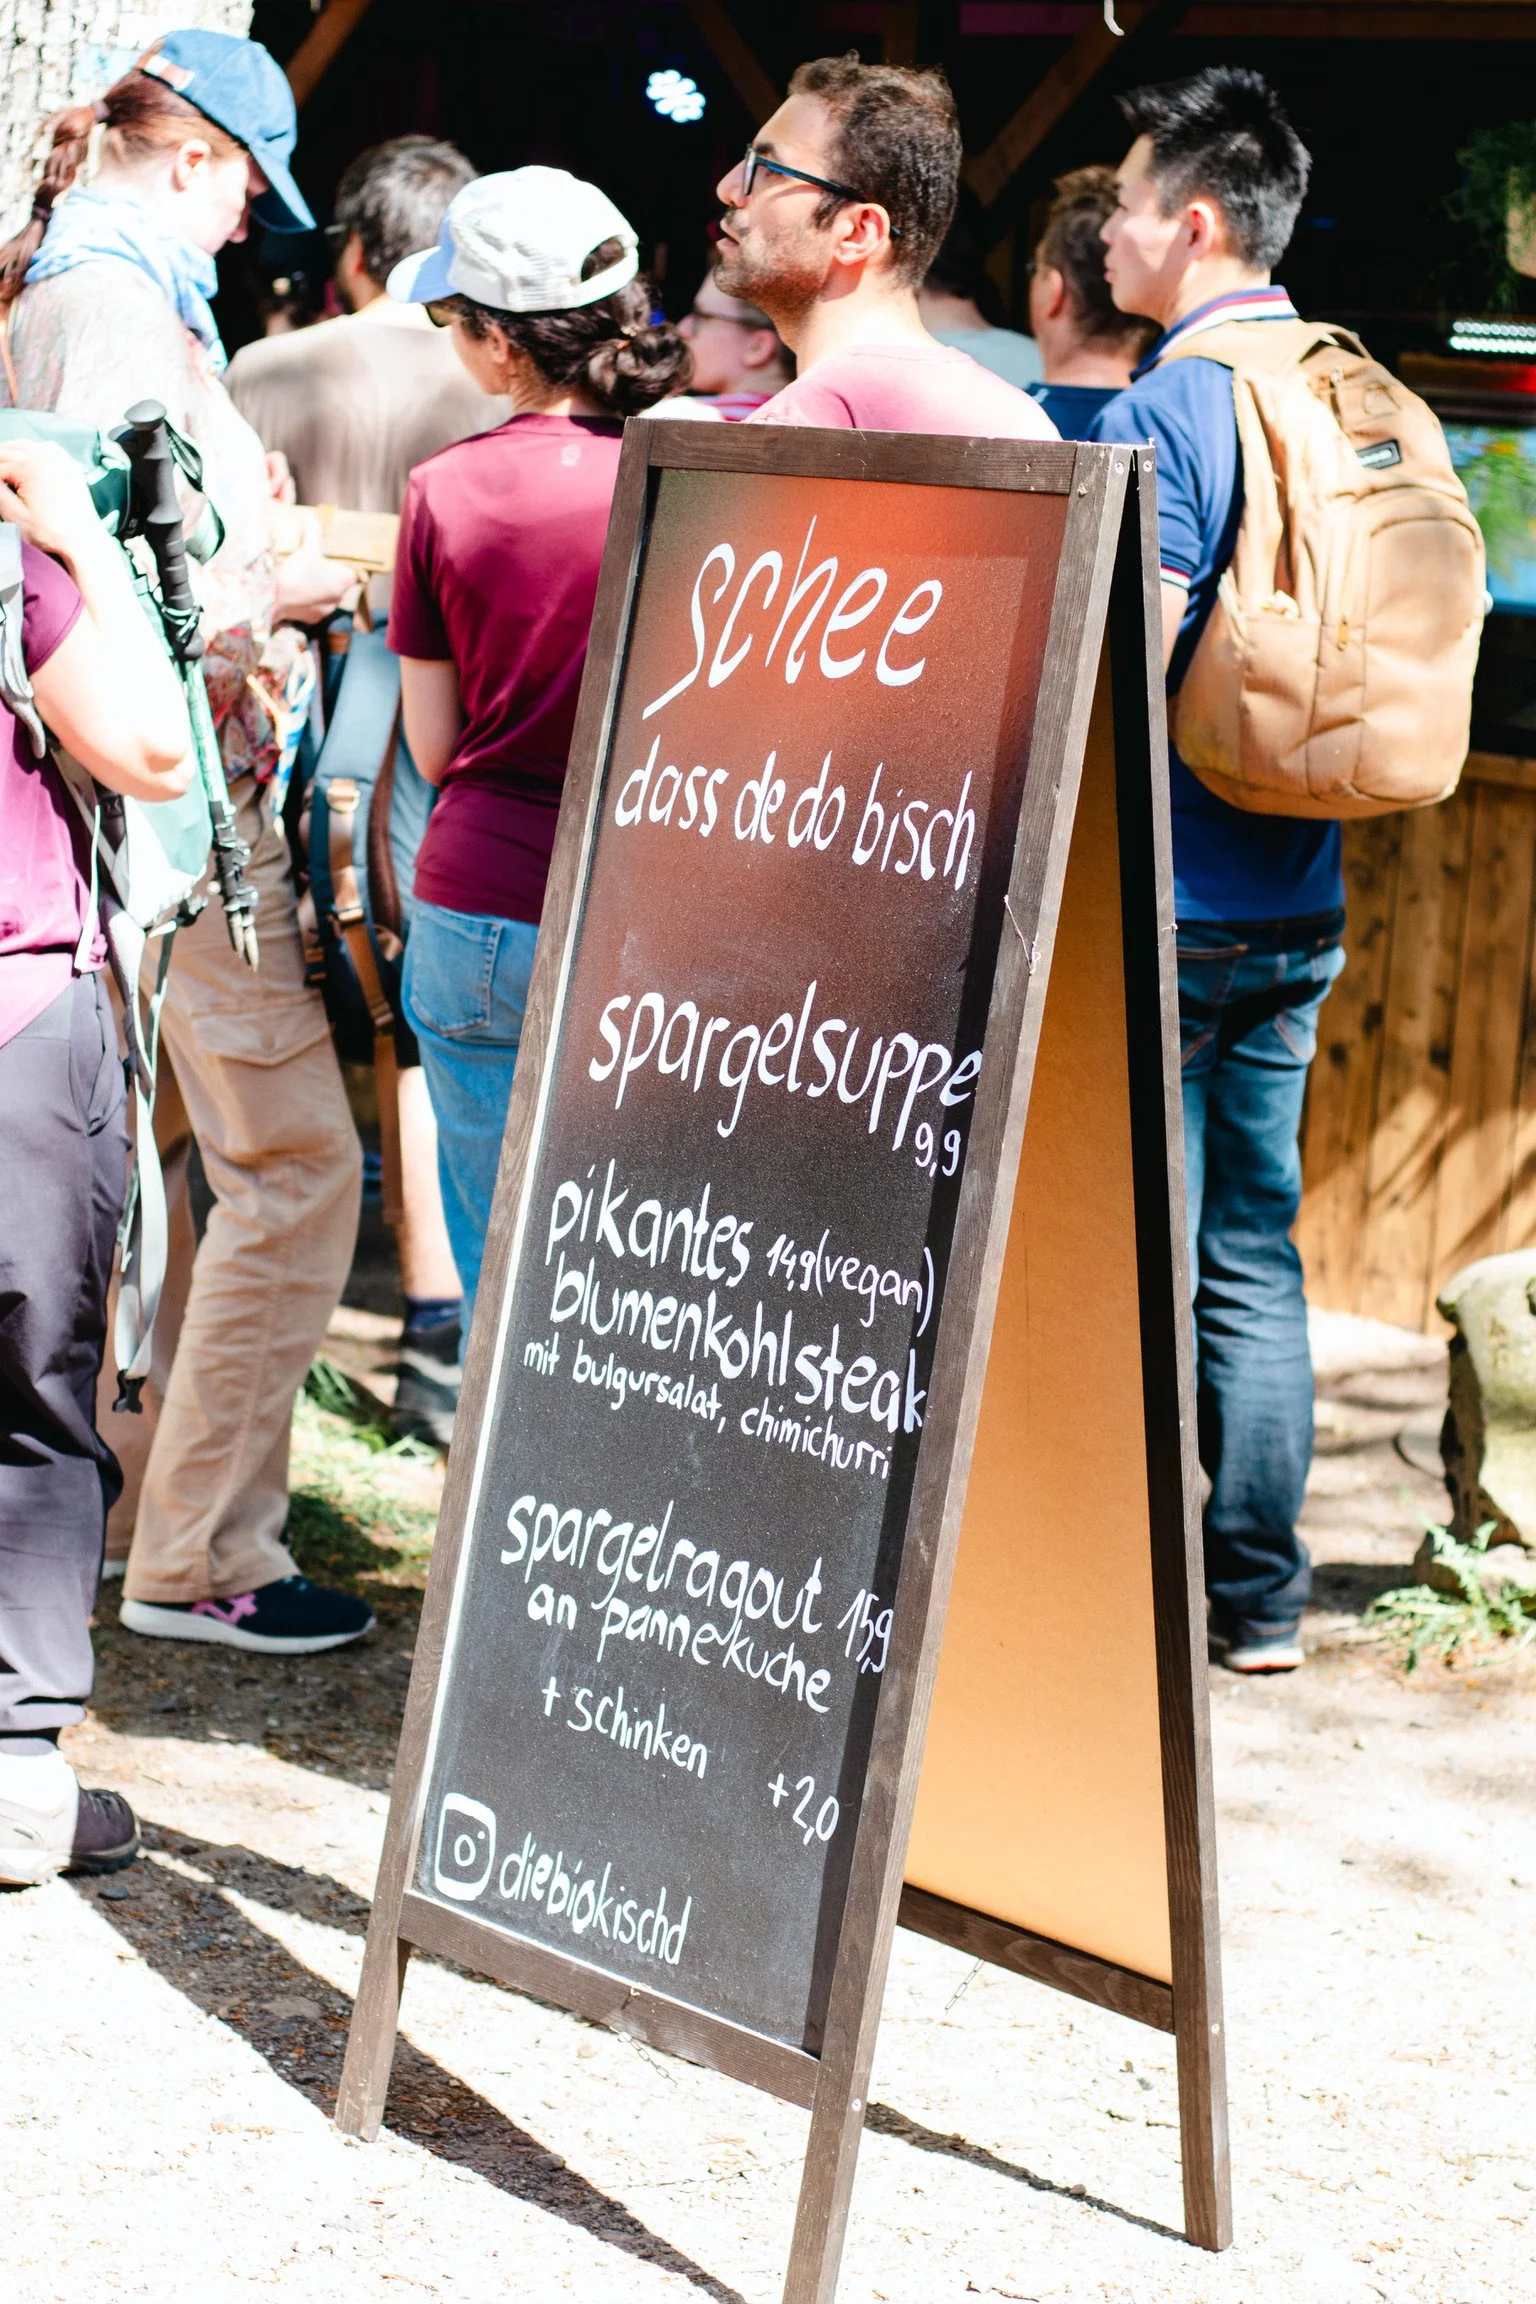 schee
dass de do bisch
spargelsuppe
9,9
pikantes 14,9 (vegan)
blumenkohlsteak
mit bulgursalat, chimichurri
spargelragout 15,9
an pannekuche
+ schinken
+2,0
diebiokischd